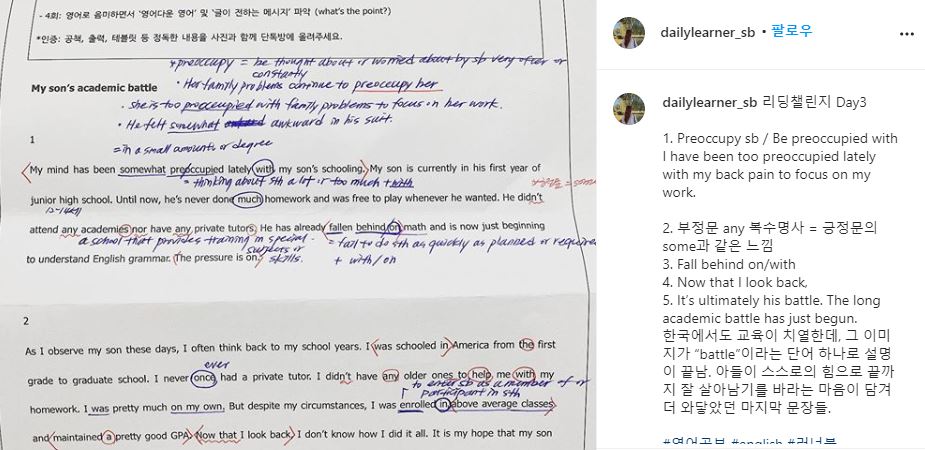 - 4회: 영어로 음미하면서 '영어다운 영어' 및 '글이 전하는 메시지' 파악 (what's the point?)
*인증: 공책, 출력, 테블릿 등 정독한 내용을 사진과 함께 단톡방에 올려주세요.
* preoccupy = be thought about or worried about by sb very often or
constantly
My son's academic battle
· Her family problems continue to preoccupy her
· She is too preoccupied with family problems to focus on her work.
· He felt somewhat awkward in his suit.
= in a small amounts or degree
1
My mind has been somewhat preoccupied lately with my son's schooling. My son is currently in his first year of
= thinking about sth a lot or too much + with
junior high school. Until now, he's never done much homework and was free to play whenever he wanted. He didn't
attend any academies nor have any private tutors. He has already fallen behind on math and is now just beginning
a school that provides training in special
subjects or
skills.
= fail to do sth as quickly as planned or required
+ with/on
to understand English grammar. The pressure is on.
2
As I observe my son these days, I often think back to my school years. I was schooled in America from the first
ever
grade to graduate school. I never once had a private tutor. I didn't have any older ones to help me with my
to enter sb as a member of or
participant in sth
homework. I was pretty much on my own. But despite my circumstances, I was enrolled in above average classes
and maintained a pretty good GPA. Now that I look back, I don't know how I did it all. It is my hope that my son
dailylearner_sb • 팔로우
dailylearner_sb 리딩챌린지 Day3
1. Preoccupy sb / Be preoccupied with
I have been too preoccupied lately
with my back pain to focus on my
work.
2. 부정문 any 복수명사 = 긍정문의
some과 같은 느낌
3. Fall behind on/with
4. Now that I look back,
5. It's ultimately his battle. The long
academic battle has just begun.
한국에서도 교육이 치열한데, 그 이미
지가 "battle"이라는 단어 하나로 설명
이 끝남. 아들이 스스로의 힘으로 끝까
지 잘 살아남기를 바라는 마음이 담겨
더 와닿았던 마지막 문장들.
#영어공부 #english #러너블